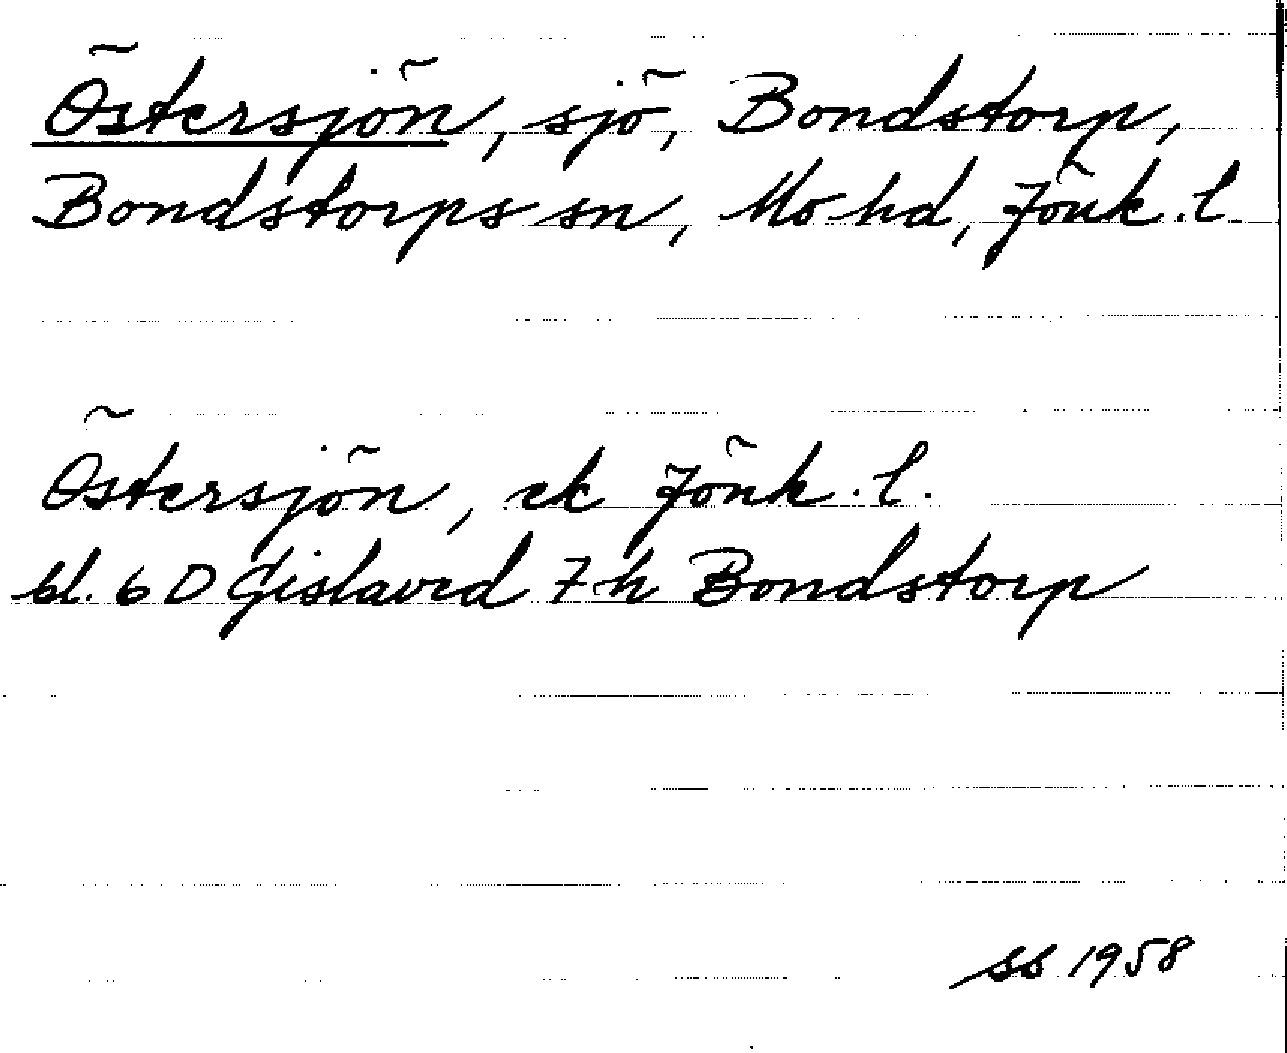 Östersjön, sjö, Bondstorp,
Bondstorps sn, Mo hd, Jönk.l.
Östersjön, ek Jönk.l.
bl. 6D Gislaved 7h Bondstorp
SS 1958